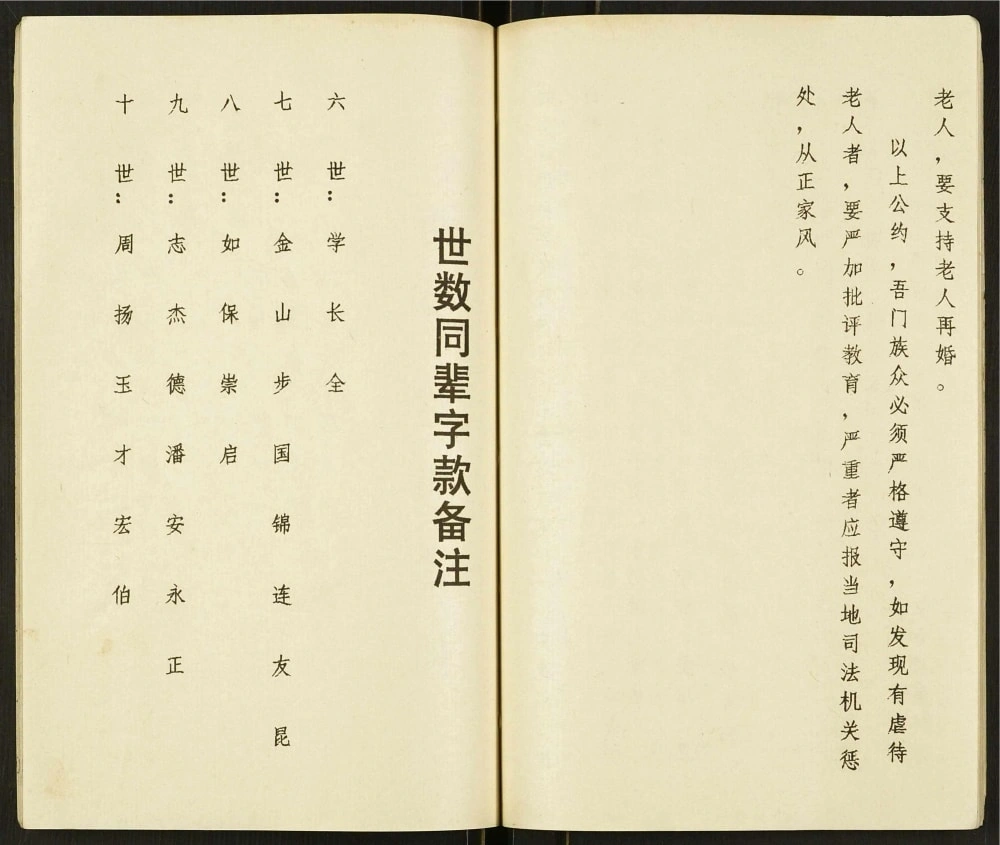 老人，要支持老人再婚。
以上公约，吾门族众必须严格遵守，如发现有虐待
老人者，要严加批评教育，严重者应报当地司法机关惩
处，从正家风。
世数同辈字款备注
六世：学长全
七世：金山步国锦连友昆
八世：如保崇启
九世：志杰德潘安永正
十世：周扬玉才宏伯